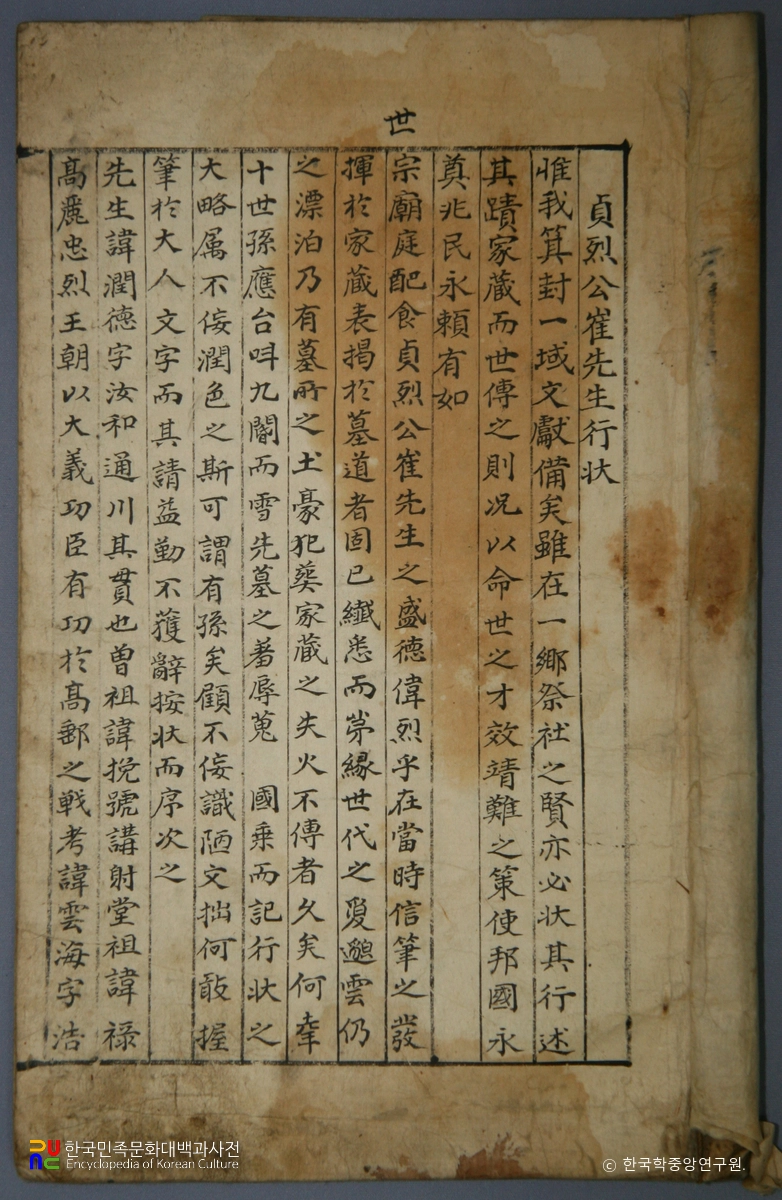 世
貞烈公崔先生行狀
惟我箕封一域文獻備矣雖在一鄉祭社之賢亦必狀其行述
其蹟家藏而世傳之則况以命世之才效靖難之策使邦國永
奠兆民永賴有如
宗廟庭配食貞烈公崔先生之盛德偉烈乎在當時信筆之發
揮於家藏表揭於墓道者固已纖悉而苐緣世代之夐邈雲仍
之漂泊乃有墓所之土豪犯葬家藏之失火不傳者久矣何幸
十世孫應台呌九閽而雪先墓之羞辱蒐 國乗而記行狀之
大略属不侫潤色之斯可謂有孫矣顧不侫識陋文拙何敢握
筆於大人文字而其請益勤不獲辭按狀而序次之
先生諱潤德字汝和通川其貫也曽祖諱挽號講射堂祖諱祿
髙麗忠烈王朝以大義功臣有功於髙郵之戦考諱雲海字浩
한국민족문화대백과사전
Encyclopedia of Korean Culture
© 한국학중앙연구원.